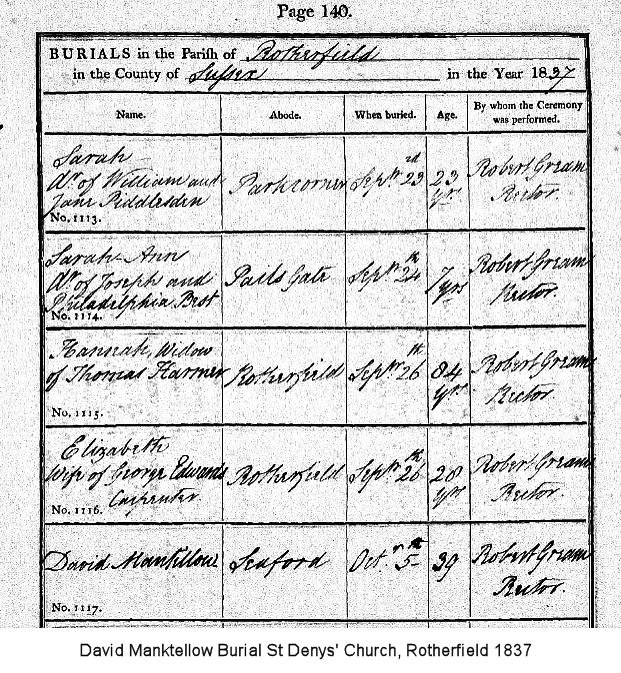 Page 140.
BURIALS in the Parish of Rotherfield
in the County of Sussex in the Year 1837
Name. Abode. When buried. Age. By whom the Ceremony was performed.
Sarah
Dr. of William and
Jane Piddlesden
No. 1113.
Parkcorner
Septr 23rd
23
yrs
Robert Gream
Rector.
Sarah Ann
Dr. of Joseph and
Philadelphia Best
No. 1114.
Pails Gate
Septr 24th
7 yrs
Robert Gream
Rector.
Hannah, Widow
of Thomas Harmer
No. 1115.
Rotherfield
Septr 26th
84
yrs
Robert Gream
Rector
Elizabeth
Wife of George Edwards
Carpenter
No. 1116.
Rotherfield
Septr 26th
28
yrs
Robert Gream
Rector.
David Manktellow
No. 1117.
Seaford
Octr 5th
39
Robert Gream
Rector.
David Manktellow Burial St Denys' Church, Rotherfield 1837